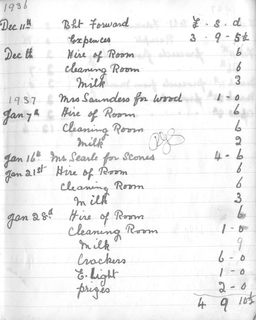 1936
Dec 11th Bkt Forward £ . S . d
Expences 3 - 9 - 5½
Dec th Hire of Room 6
Cleaning Room 6
Milk 3
1937 Mrs Saunders for wood 1 - 0
Jan 7th Hire of Room 6
Cleaning Room 6
Milk 2
Jan 16th Mr Searle for Scones 4 - 6
Jan 21st Hire of Room 6
Cleaning Room 6
Milk 3
Jan 28d Hire of Room 6
Cleaning Room 1 - 0
Milk 9
Crackers 6 - 0
E. Light 1 - 0
prizes 2 - 0
4 9 10½